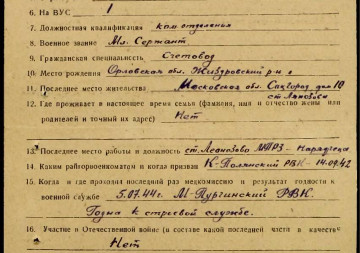 6. На ВУС 1
7. Должностная квалификация ком отделения
8. Военное звание Мл. Сержант
9. Гражданская специальность Счетовод
10. Место рождения Орловская обл. р-н с
11. Последнее место жительства Московская обл. дом 10
ст.
12. Где проживает в настоящее время семья (фамилия, имя и отчество жены или
родителей и точный их адрес) Нет
13. Последнее место работы и должность ст. МТРЗ -
14. Каким райгорвоенкоматом и когда призван К-Полянский РВК - 14.09.42
15. Когда и где проходил последний раз медкомиссию и результат годности к
военной службе 5.07.44г. М-Пургинский РВК.
Годна к строевой службе.
16. Участие в Отечественной войне (в составе какой последней части в качеств
Нет